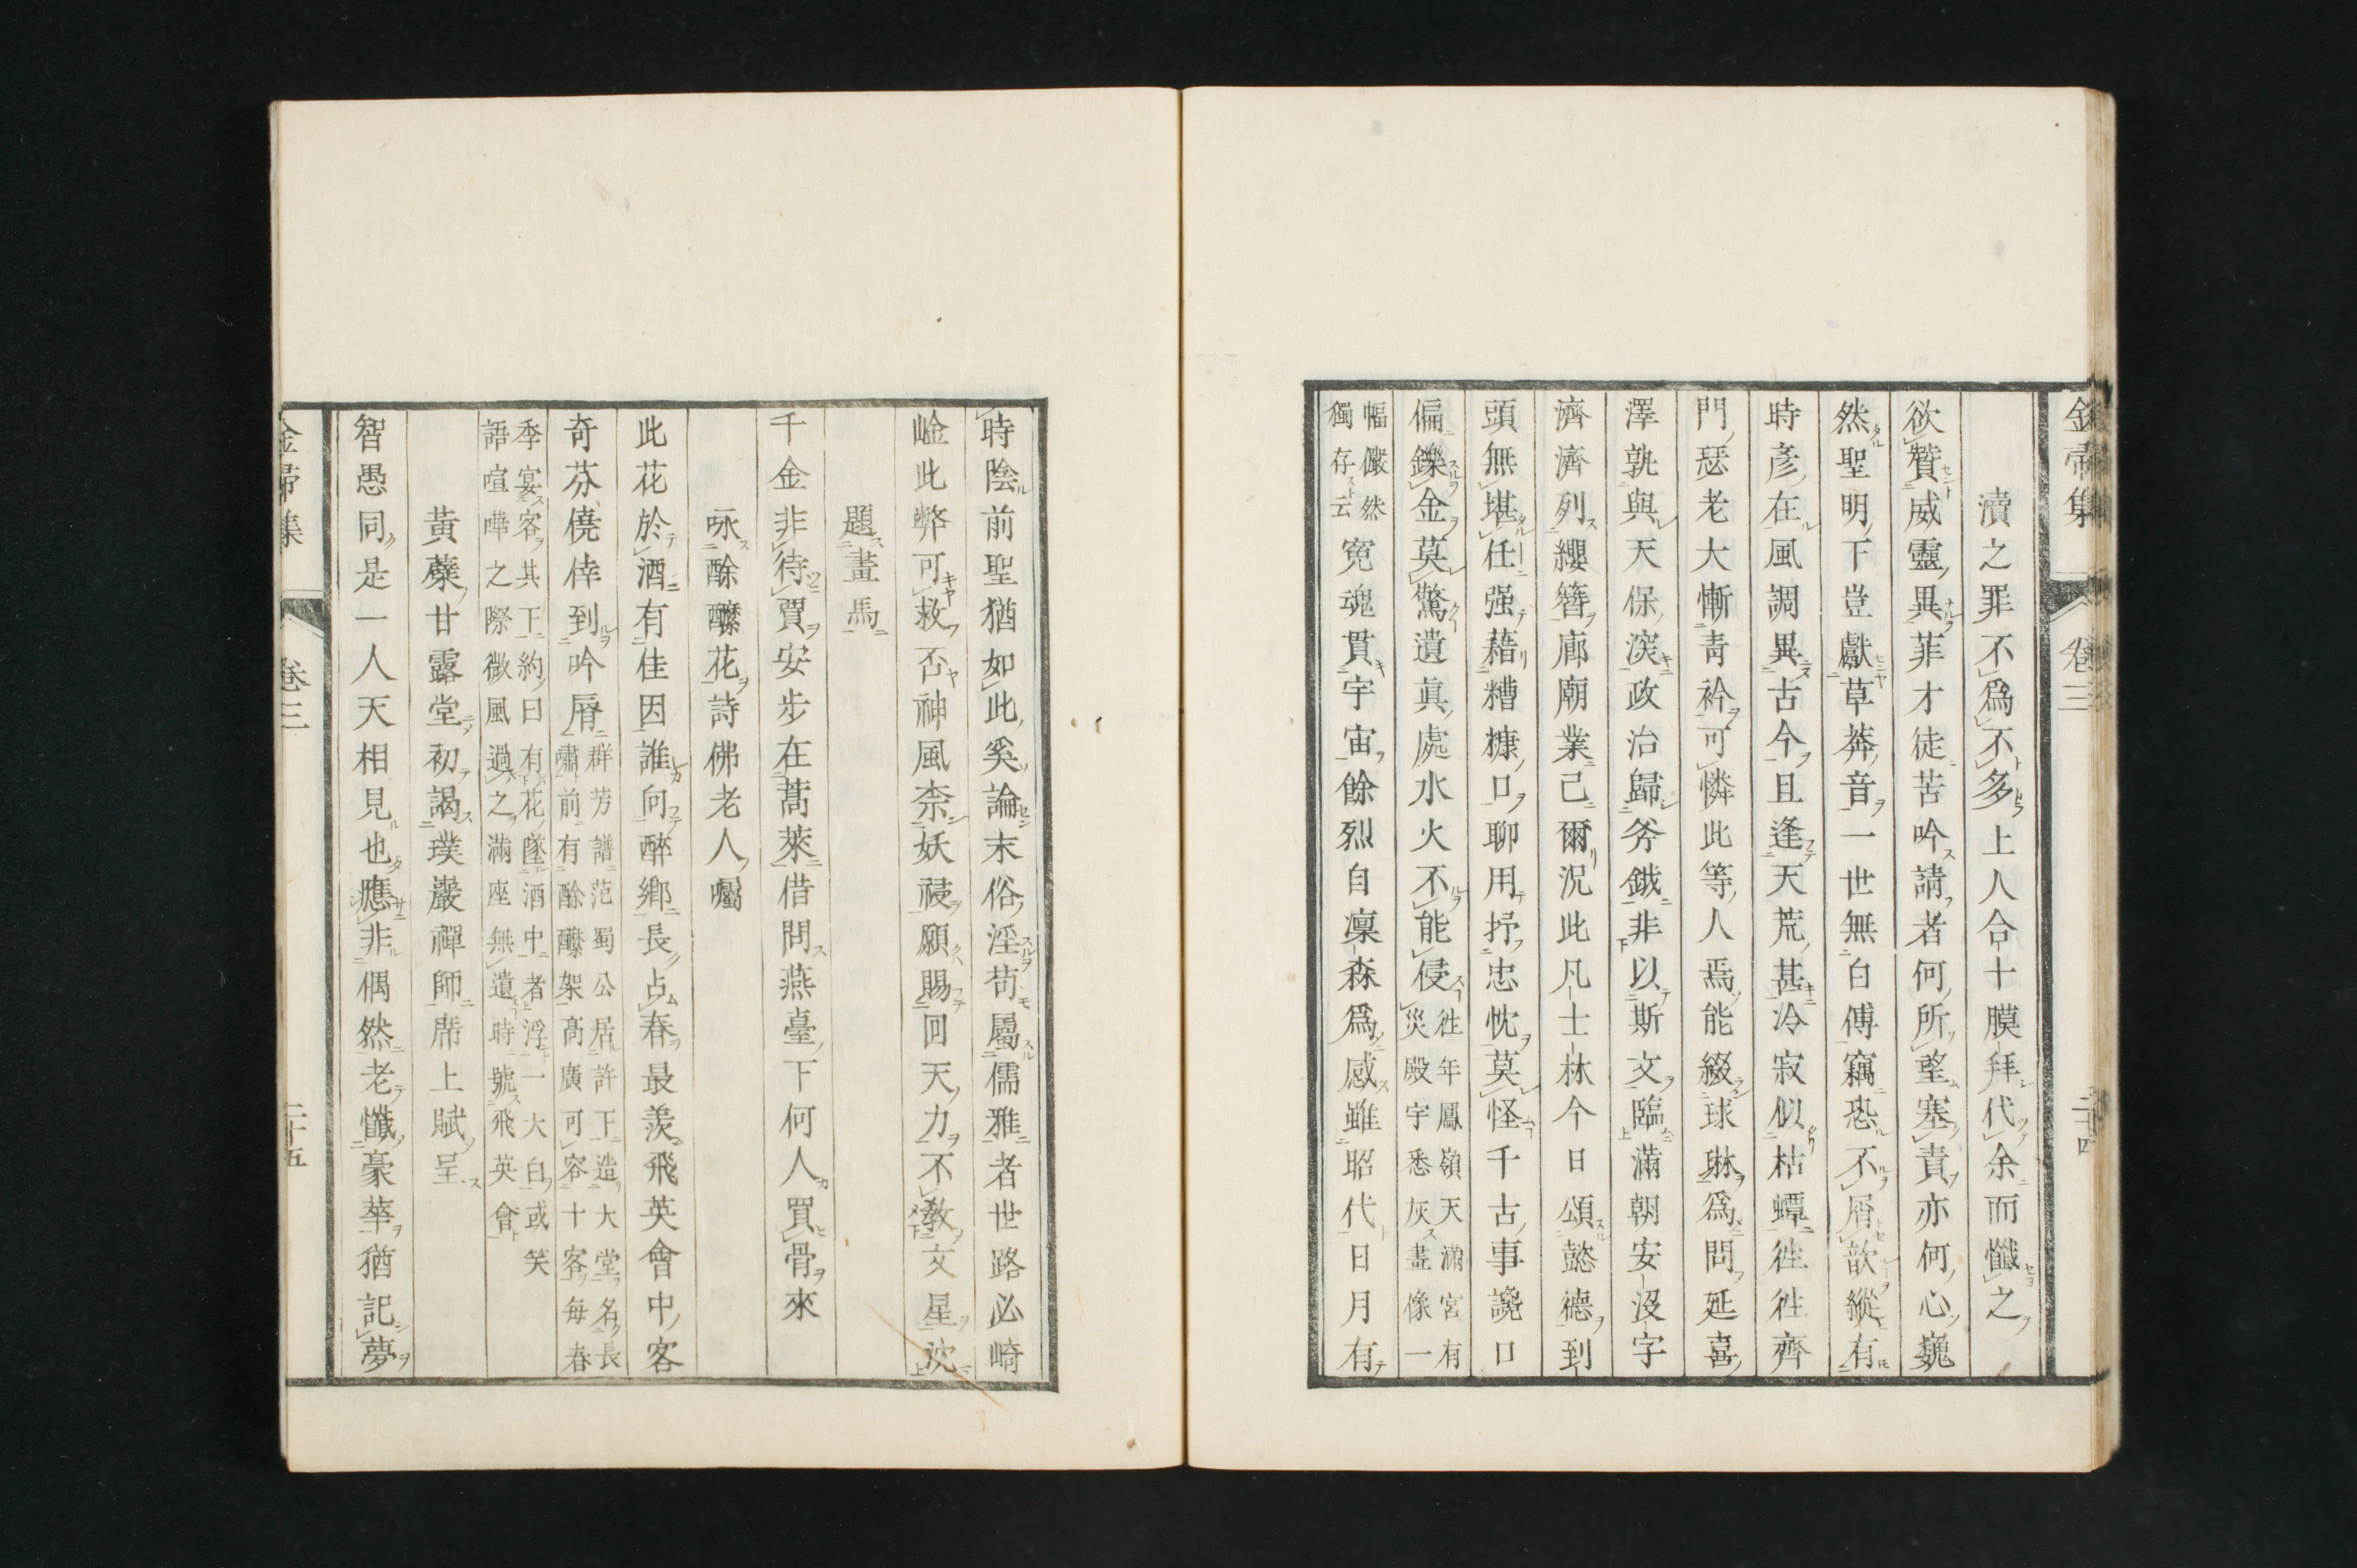 金帚集 卷三 二十四
瀆之罪不爲不多上人合十膜拜代余而懺之
欲贊威靈異菲才徒苦吟請者何所望塞責亦何心巍
然聖明下豈獻草莽音一世無白傅竊恐不屑歆縱有
時彥在風調異古今且逢天荒甚冷寂似枯蟫往往齊
門瑟老大慚靑衿可憐此等人焉能綴球琳爲問延喜
澤孰與天保深政治歸斧鉞非以斯文臨滿朝安沒字
濟濟列纓簪廊廟業已爾況此凡士林今日頌懿德到
頭無堪任强藉糟糠口聊用抒忠忱莫怪千古事讒口
偏鑠金莫驚遺眞處水火不能侵
往年鳳嶺天滿宮有
災殿宇悉灰畫像一
幅儼然
獨存云
寃魂貫宇宙餘烈自凜森爲感雖昭代日月有
時陰前聖猶如此奚論末俗淫苟屬儒雅者世路必崎
崯此弊可救否神風柰妖祲願賜回天力不敎文星沈
題畫馬
千金非待賈安步在蒿萊借問燕臺下何人買骨來
咏酴醾花詩佛老人囑
此花於酒有佳因誰向醉鄉長占春最羨飛英會中客
奇芬僥倖到吟脣
群芳譜范蜀公居許下造大堂名長
嘯前有酴醾架高廣可容十客每春
季宴客其下約曰有花墜酒中者浮一大白或笑
語喧嘩之際微風過之滿座無遺時號飛英會
黃蘗甘露堂初謁璞巖禪師席上賦呈
智愚同是一人天相見也應非偶然老懺豪華猶記夢
金帚集 卷三 二十五